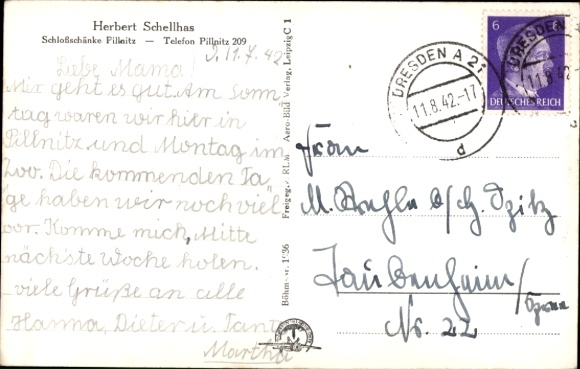 Herbert Schellhas
Schloßschänke Pillnitz — Telefon Pillnitz 209
D. 11.7.42
Liebe Mama!
Mir geht es gut. Am Sonn
tag waren wir hier in
Pillnitz und Montag im
Zoo. Die kommenden Ta
ge haben wir noch viel
vor. Komme mich, Mitte
nächste Woche holen.
viele Grüße an alle
Hanna, Dieter u. Tante
Martha
Böhm-Nr. 1636 Freigeg. RLM Aero-Bild Verlag, Leipzig C 1
DRESDEN A 21
11.8.42.-17
d
6
DEUTSCHES REICH
DRESDEN
11.8.42
Frau
M.
Taubenheim/Spree
Nr. 22